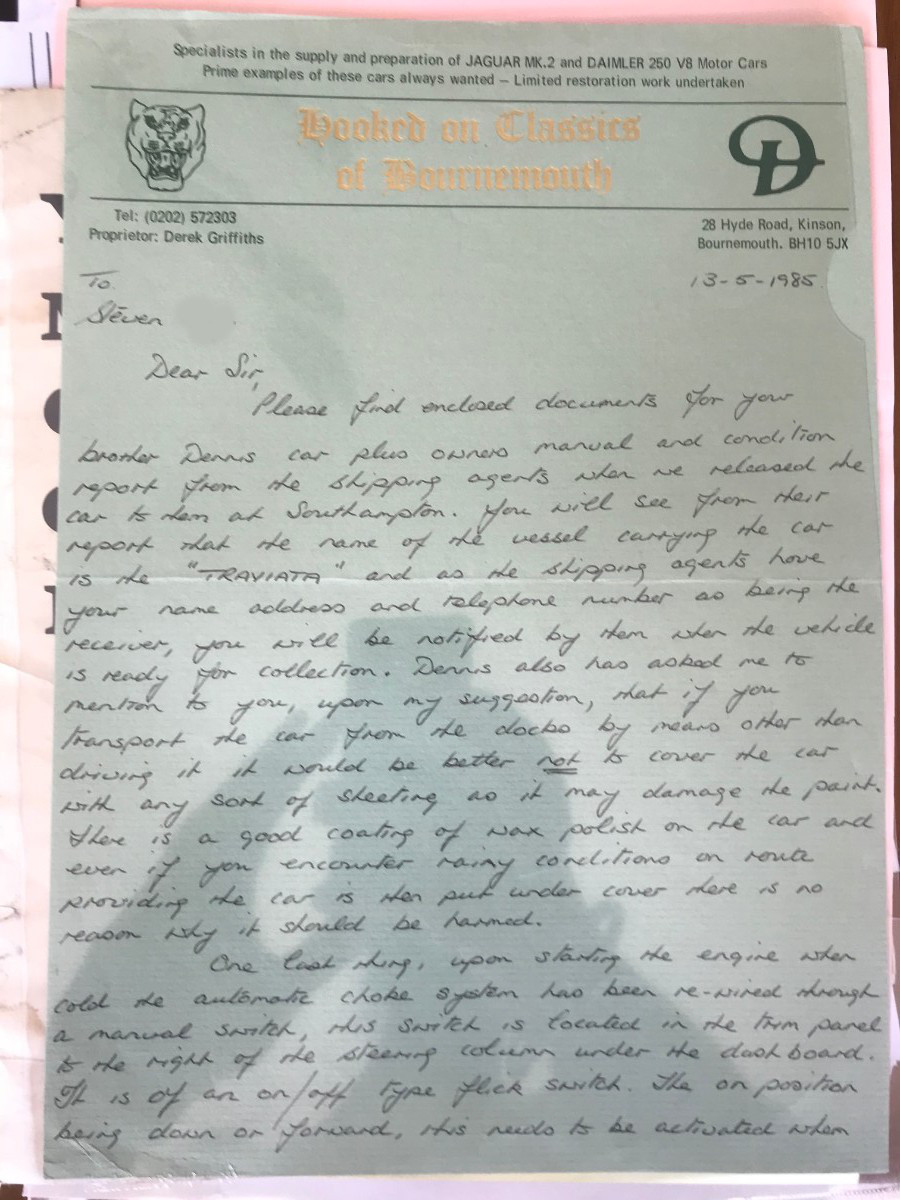 Specialists in the supply and preparation of JAGUAR MK.2 and DAIMLER 250 V8 Motor Cars
Prime examples of these cars always wanted – Limited restoration work undertaken
Hooked on Classics
of Bournemouth
D
Tel: (0202) 572303
Proprietor: Derek Griffiths
28 Hyde Road, Kinson,
Bournemouth. BH10 5JX
To.
13-5-1985
Steven
Dear Sir,
Please find enclosed documents for your
brother Dennis car plus owners manual and condition
report from the shipping agents when we released the
car to them at Southampton. You will see from their
report that the name of the vessel carrying the car
is the "TRAVIATA" and as the shipping agents have
your name address and telephone number as being the
receiver, you will be notified by them when the vehicle
is ready for collection. Dennis also has asked me to
mention to you, upon my suggestion, that if you
transport the car from the docks by means other than
driving it it would be better not to cover the car
with any sort of sheeting as it may damage the paint.
there is a good coating of wax polish on the car and
even if you encounter rainy conditions on route
providing the car is then put under cover there is no
reason why it should be harmed.
One last thing, upon starting the engine when
cold the automatic choke system has been re-wired through
a manual switch, this switch is located in the trim panel
to the right of the steering column under the dash board.
It is of an on/off type flick switch. The on position
being down or forward, this needs to be activated when